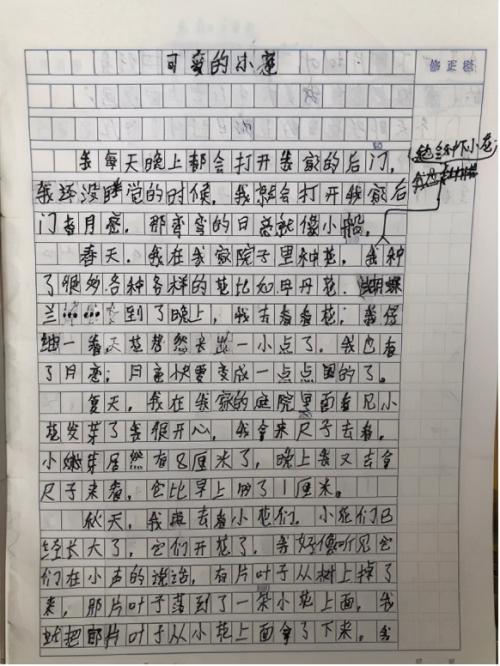 可变的小莲
修正栏
我每天晚上都会打开我家的后门,
我还没睡觉的时候,我就会打开我家后
门看月亮,那弯弯的月亮就像小船。
春天,我在我家院子里种花,我种
了很多各种各样的花比如牡丹花、蝴蝶
兰……到了晚上,我去看看花;我仔
细一看,天花居然长出一小点了,我也看
了月亮;月亮快要变成一点点圆的了。
夏天,我在我家的庭院里面看见小
花发芽了我很开心,我拿来尺子去看,
小嫩芽居然有8厘米了,晚上我又去拿
尺子来看,它比早上的了1厘米。
秋天,我去看小花们,小花们已
经长大了,它们开花了,我好像听见它
们在小声的说话,有片叶子从树上掉了
来,那片叶子落到了一朵小花上面,我
就把那片叶子从小花上面拿了下来。我